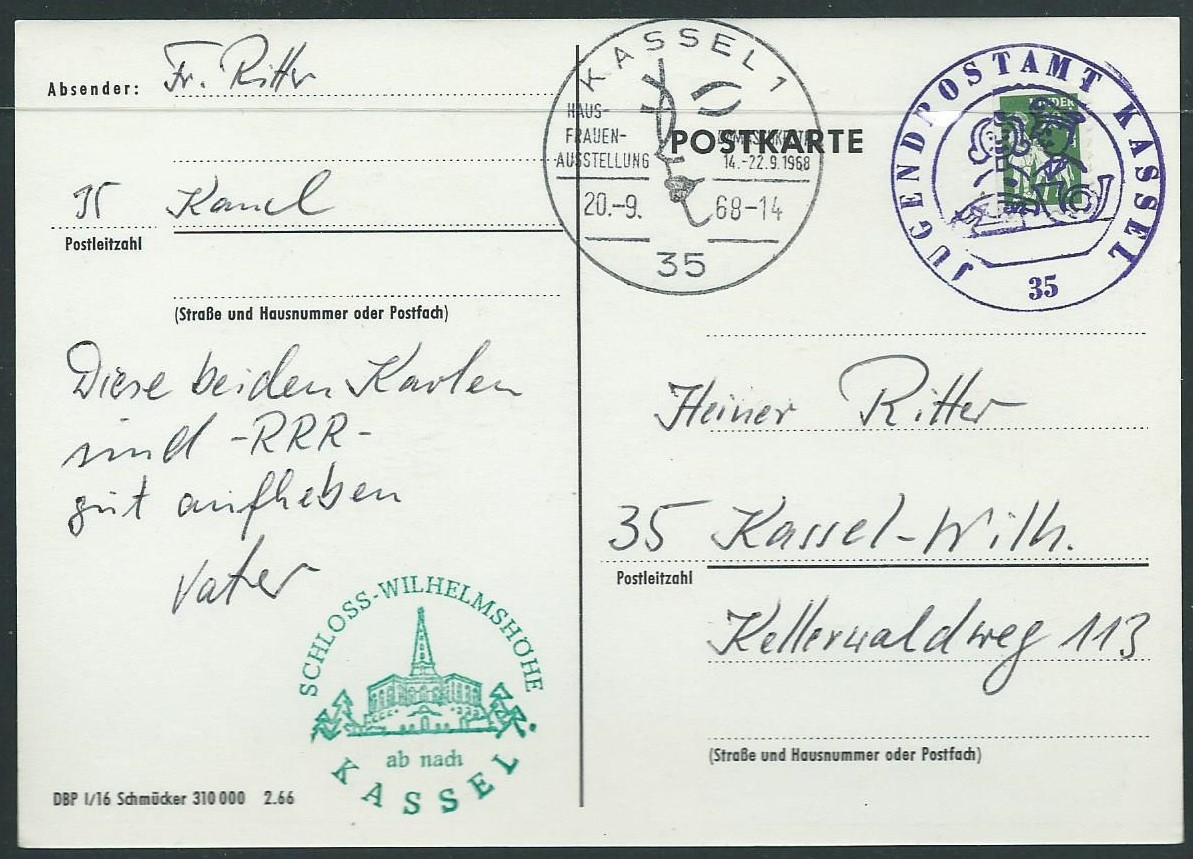 Absender: Fr. Ritter
35 Kassel
Postleitzahl
(Straße und Hausnummer oder Postfach)
Diese beiden Karten
sind -RRR-
gut aufheben
Vater
SCHLOSS-WILHELMSHÖHE
ab nach
KASSEL
DBP I/16 Schmücker 310 000 2.66
KASSEL 1
HAUS-
FRAUEN-
AUSSTELLUNG
14.-22.9.1968
20.-9. 68-14
35
POSTKARTE
JUGENDPOSTAMT KASSEL
35
Heiner Ritter
35 Kassel-Wilh.
Postleitzahl
Kellerwaldweg 113
(Straße und Hausnummer oder Postfach)